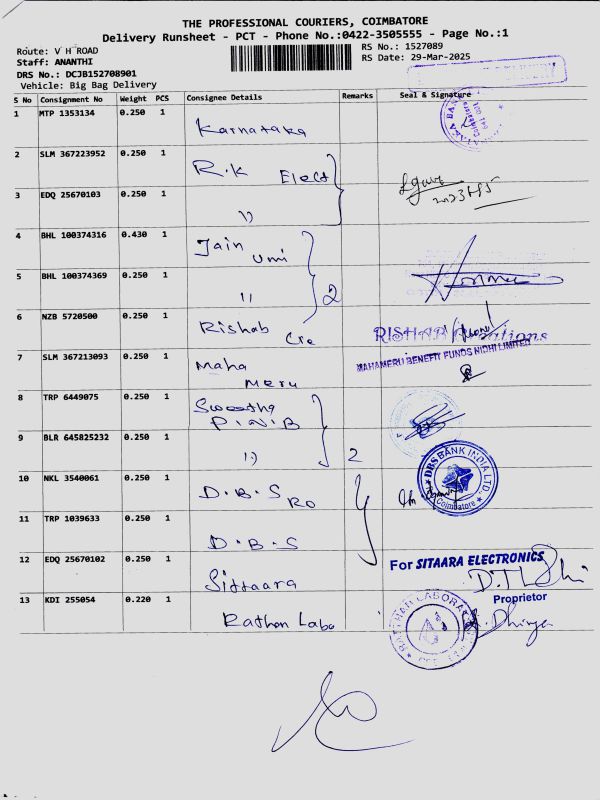 THE PROFESSIONAL COURIERS, COIMBATORE
Delivery Runsheet - PCT - Phone No.:0422-3505555 - Page No.:1
Route: V H ROAD
RS No.: 1527089
Staff: ANANTHI
RS Date: 29-Mar-2025
DRS No.: DCJB152708901
Vehicle: Big Bag Delivery
S No Consignment No Weight PCS Consignee Details Remarks Seal & Signature
1 MTP 1353134 0.250 1 Karnataka
2 SLM 367223952 0.250 1 R.K Elect
3 EDQ 25670103 0.250 1 ''
4 BHL 100374316 0.430 1 Jain Uni
5 BHL 100374369 0.250 1 '' 2
6 NZB 5720500 0.250 1 Rishab Cre
RISHAB Creations
7 SLM 367213093 0.250 1 Maha Meru
MAHAMERU BENEFIT FUNDS NIDHI LIMITED
8 TRP 6449075 0.250 1 Swestha P.N.B
9 BLR 645825232 0.250 1 '' 2
10 NKL 3540061 0.250 1 D.B.S RO
DBS BANK INDIA LTD
Coimbatore
11 TRP 1039633 0.250 1 D.B.S
12 EDQ 25670102 0.250 1 Sittaara
For SITAARA ELECTRONICS
Proprietor
13 KDI 255054 0.220 1 Rathan Labo